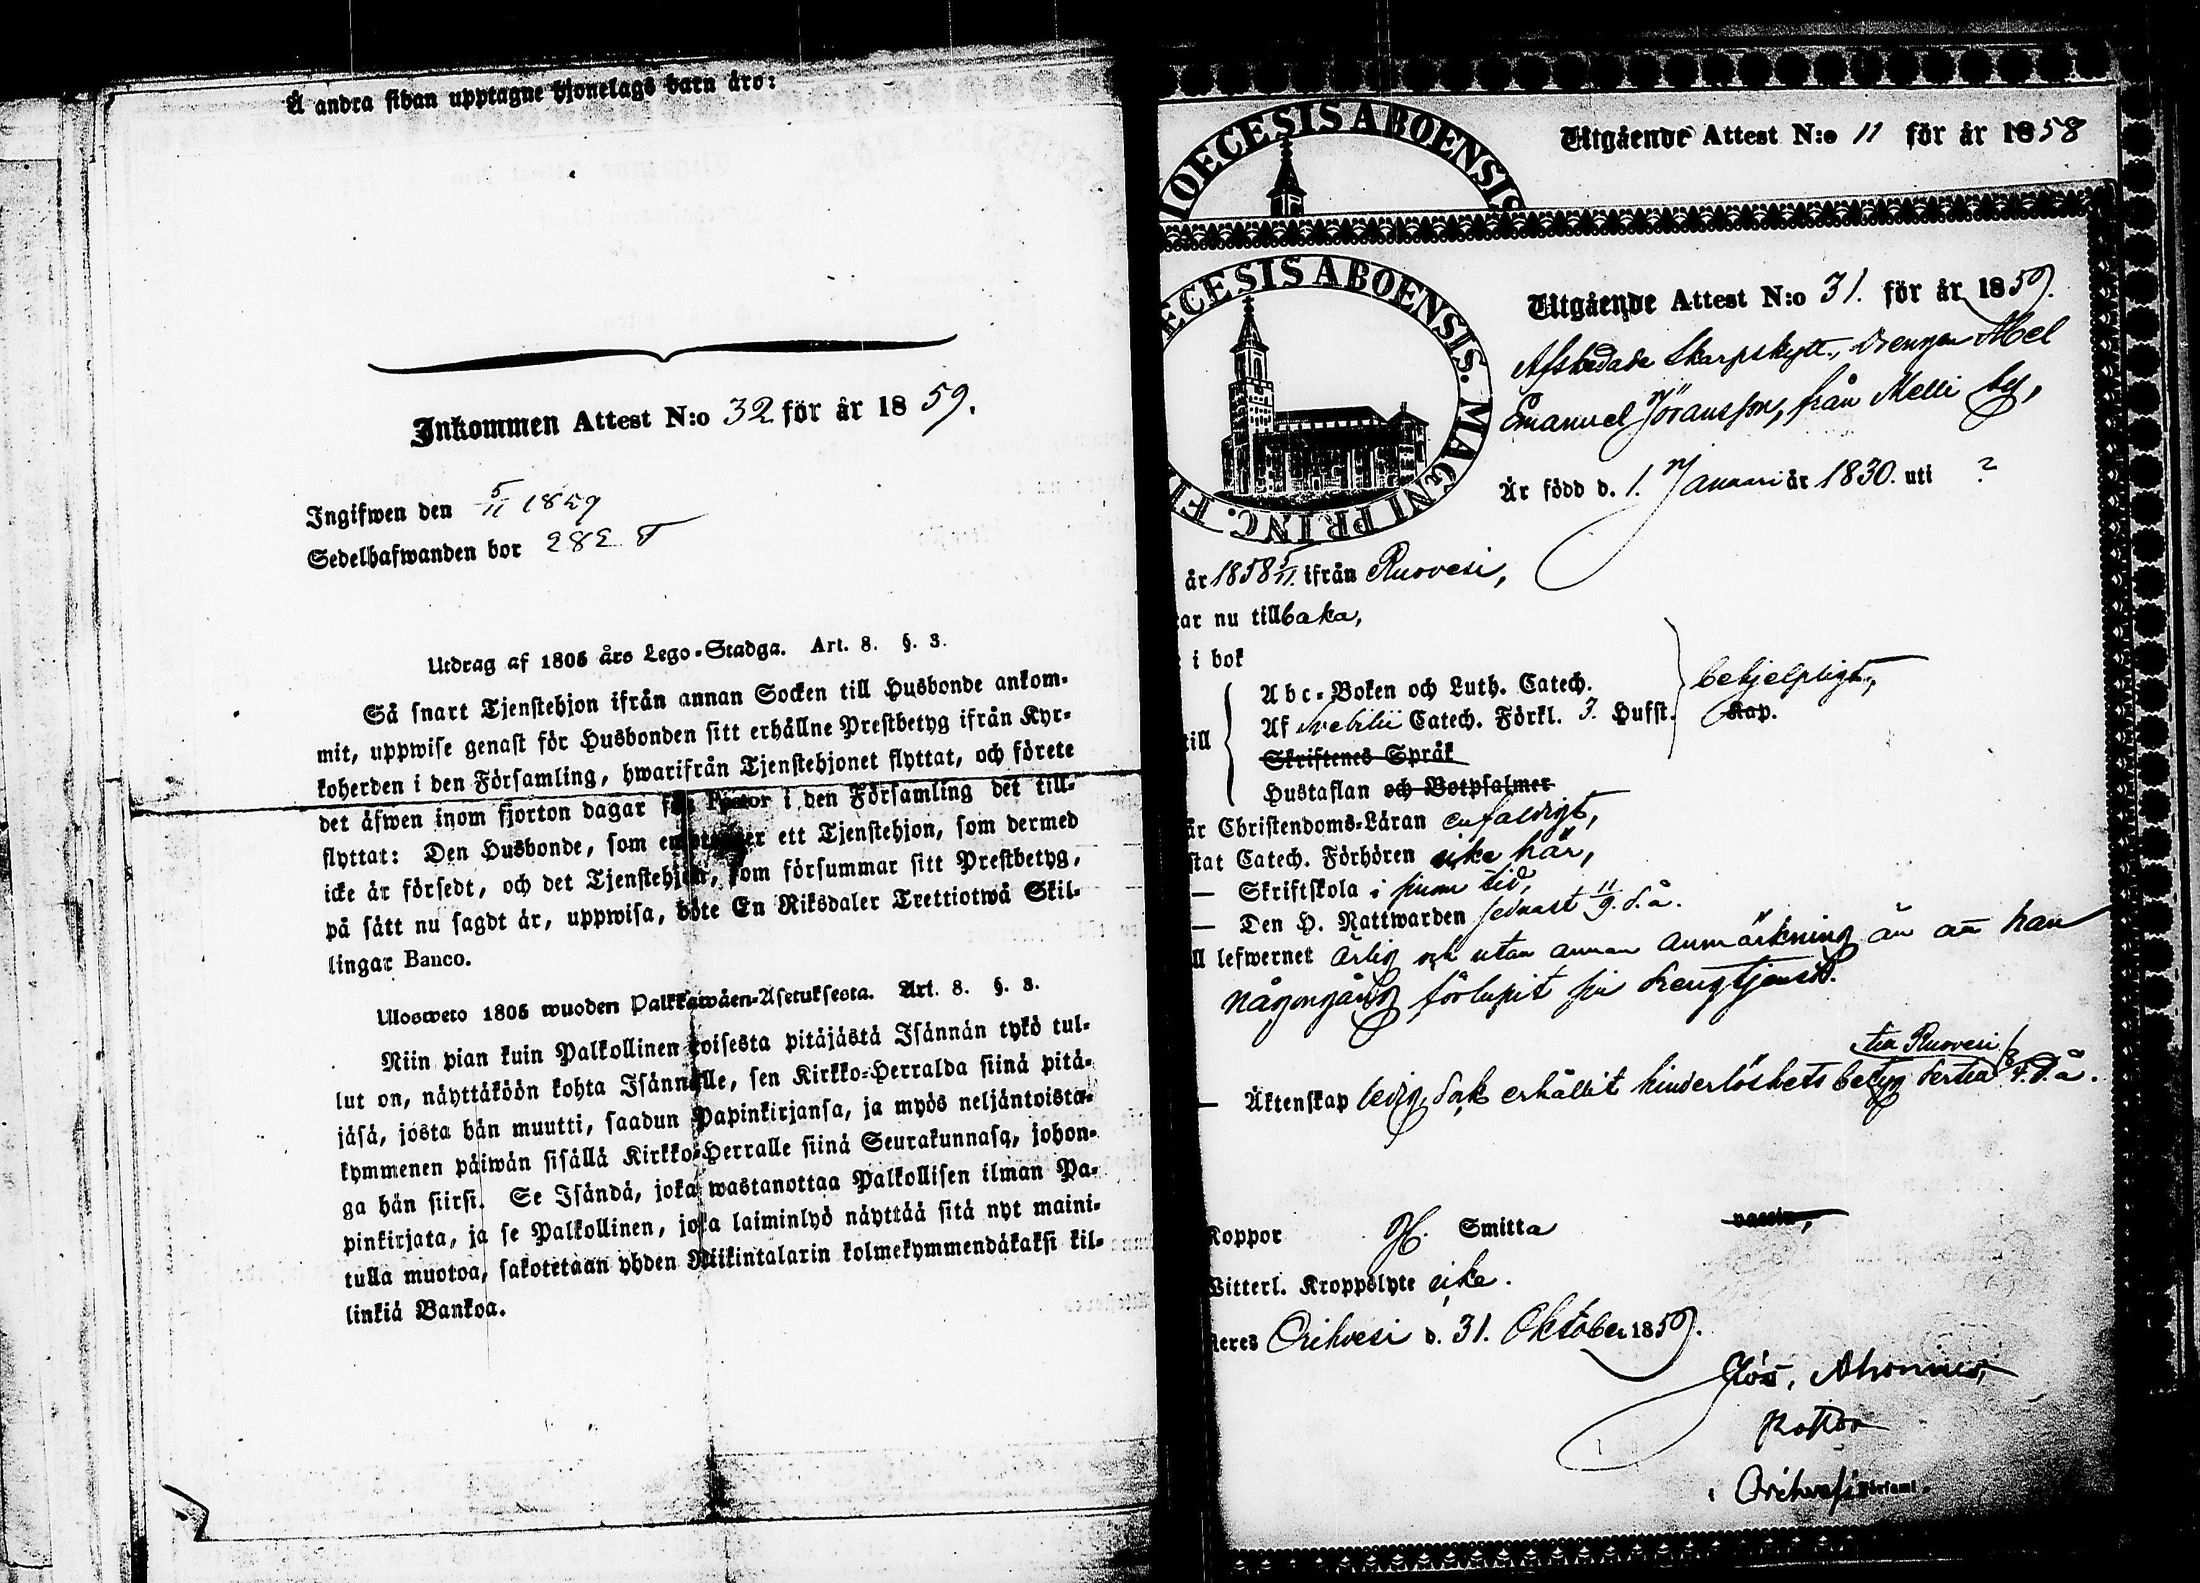 Å andra sidan upptagne hjonelags barn äro:
Inkommen Attest N:o 32 för år 1859.
Ingifwen den 5/11 1859
Sedelhafwanden bor 282
Utdrag af 1805 års Lego-Stadga. Art. 8. §. 3.
Så snart Tjenstehjon ifrån annan Socken till Husbonde ankom-
mit, uppwise genast för Husbonden sitt erhållne Prestbetyg ifrån Kyr-
koherden i den Församling, hwarifrån Tjenstehjonet flyttat, och förete
det äfwen inom fjorton dagar för Pastor i den Församling det till-
flyttat: Den Husbonde, som emottager ett Tjenstehjon, som dermed
icke är försedt, och det Tjenstehjon, som försummar sitt Prestbetyg,
på sätt nu sagdt är, uppwisa, böte En Riksdaler Trettiotwå Skil-
lingar Banco.
Uloswето 1805 wuoden Palkkawäen-Asetuksesta. Art. 8. §. 3.
Niin pian kuin Palkollinen toisesta pitäjästä Isännän tykö tul-
lut on, näyttäköön kohta Isännälle, sen Kirkko-Herralda siinä pitä-
jäsä, josta hän muutti, saadun Papinkirjansa, ja myös neljäntoista-
kymmenen päiwän sisällä Kirkko-Herralle siinä Seurakunnasa, johon-
ga hän siirsi. Se Isändä, joka wastanottaa Palkollisen ilman Pa-
pinkirjata, ja se Palkollinen, joka laiminlyö näyttää sitä nyt maini-
tulla muotoa, sakotetaan yhden Riikintalarin kolmekymmendäkaksi kil-
linkiä Bankoa.
IOECESIS ABOENSIS
Utgående Attest N:o 11 för år 1858
ECESIS ABOENSIS. MAGNI PRINC. FI
Utgående Attest N:o 31. för år 1859.
Afskedade Skarpskytt., drengen Abel
Emanuel Jöransson, från Melli by,
Är född d. 1. Januari år 1830. uti ?
år 1858 5/11. ifrån Ruovesi,
ar nu tillbaka,
i bok
Abc-Boken och Luth. Catech.
behjelpligt,
till
Af Svebilii Catech. Förkl. 3. Husst. Kap.
Skriftenes Språk
Hustaflan och Botpsalmer
är Christendoms-Läran enfaldigt,
stat Catech. Förhören icke här,
— Skriftskola i sinom tid,
— Den H. Nattwarden sednast 11/9. d. å.
ll lefwernet ärlig och utan annan anmärkning än att han
någongång förlupit sin drengtjenst.
till Ruovesi
— Äktenskap ledig, dock erhållit hinderlöshets betyg dertill 8/4. d. å.
Koppor H. Smitta vaccin,
Witterl. Kroppslyte icke.
eres Orihvesi d. 31. Oktober 1859.
Jos. Ahonius,
Pastor
i Orihvesi Församl.